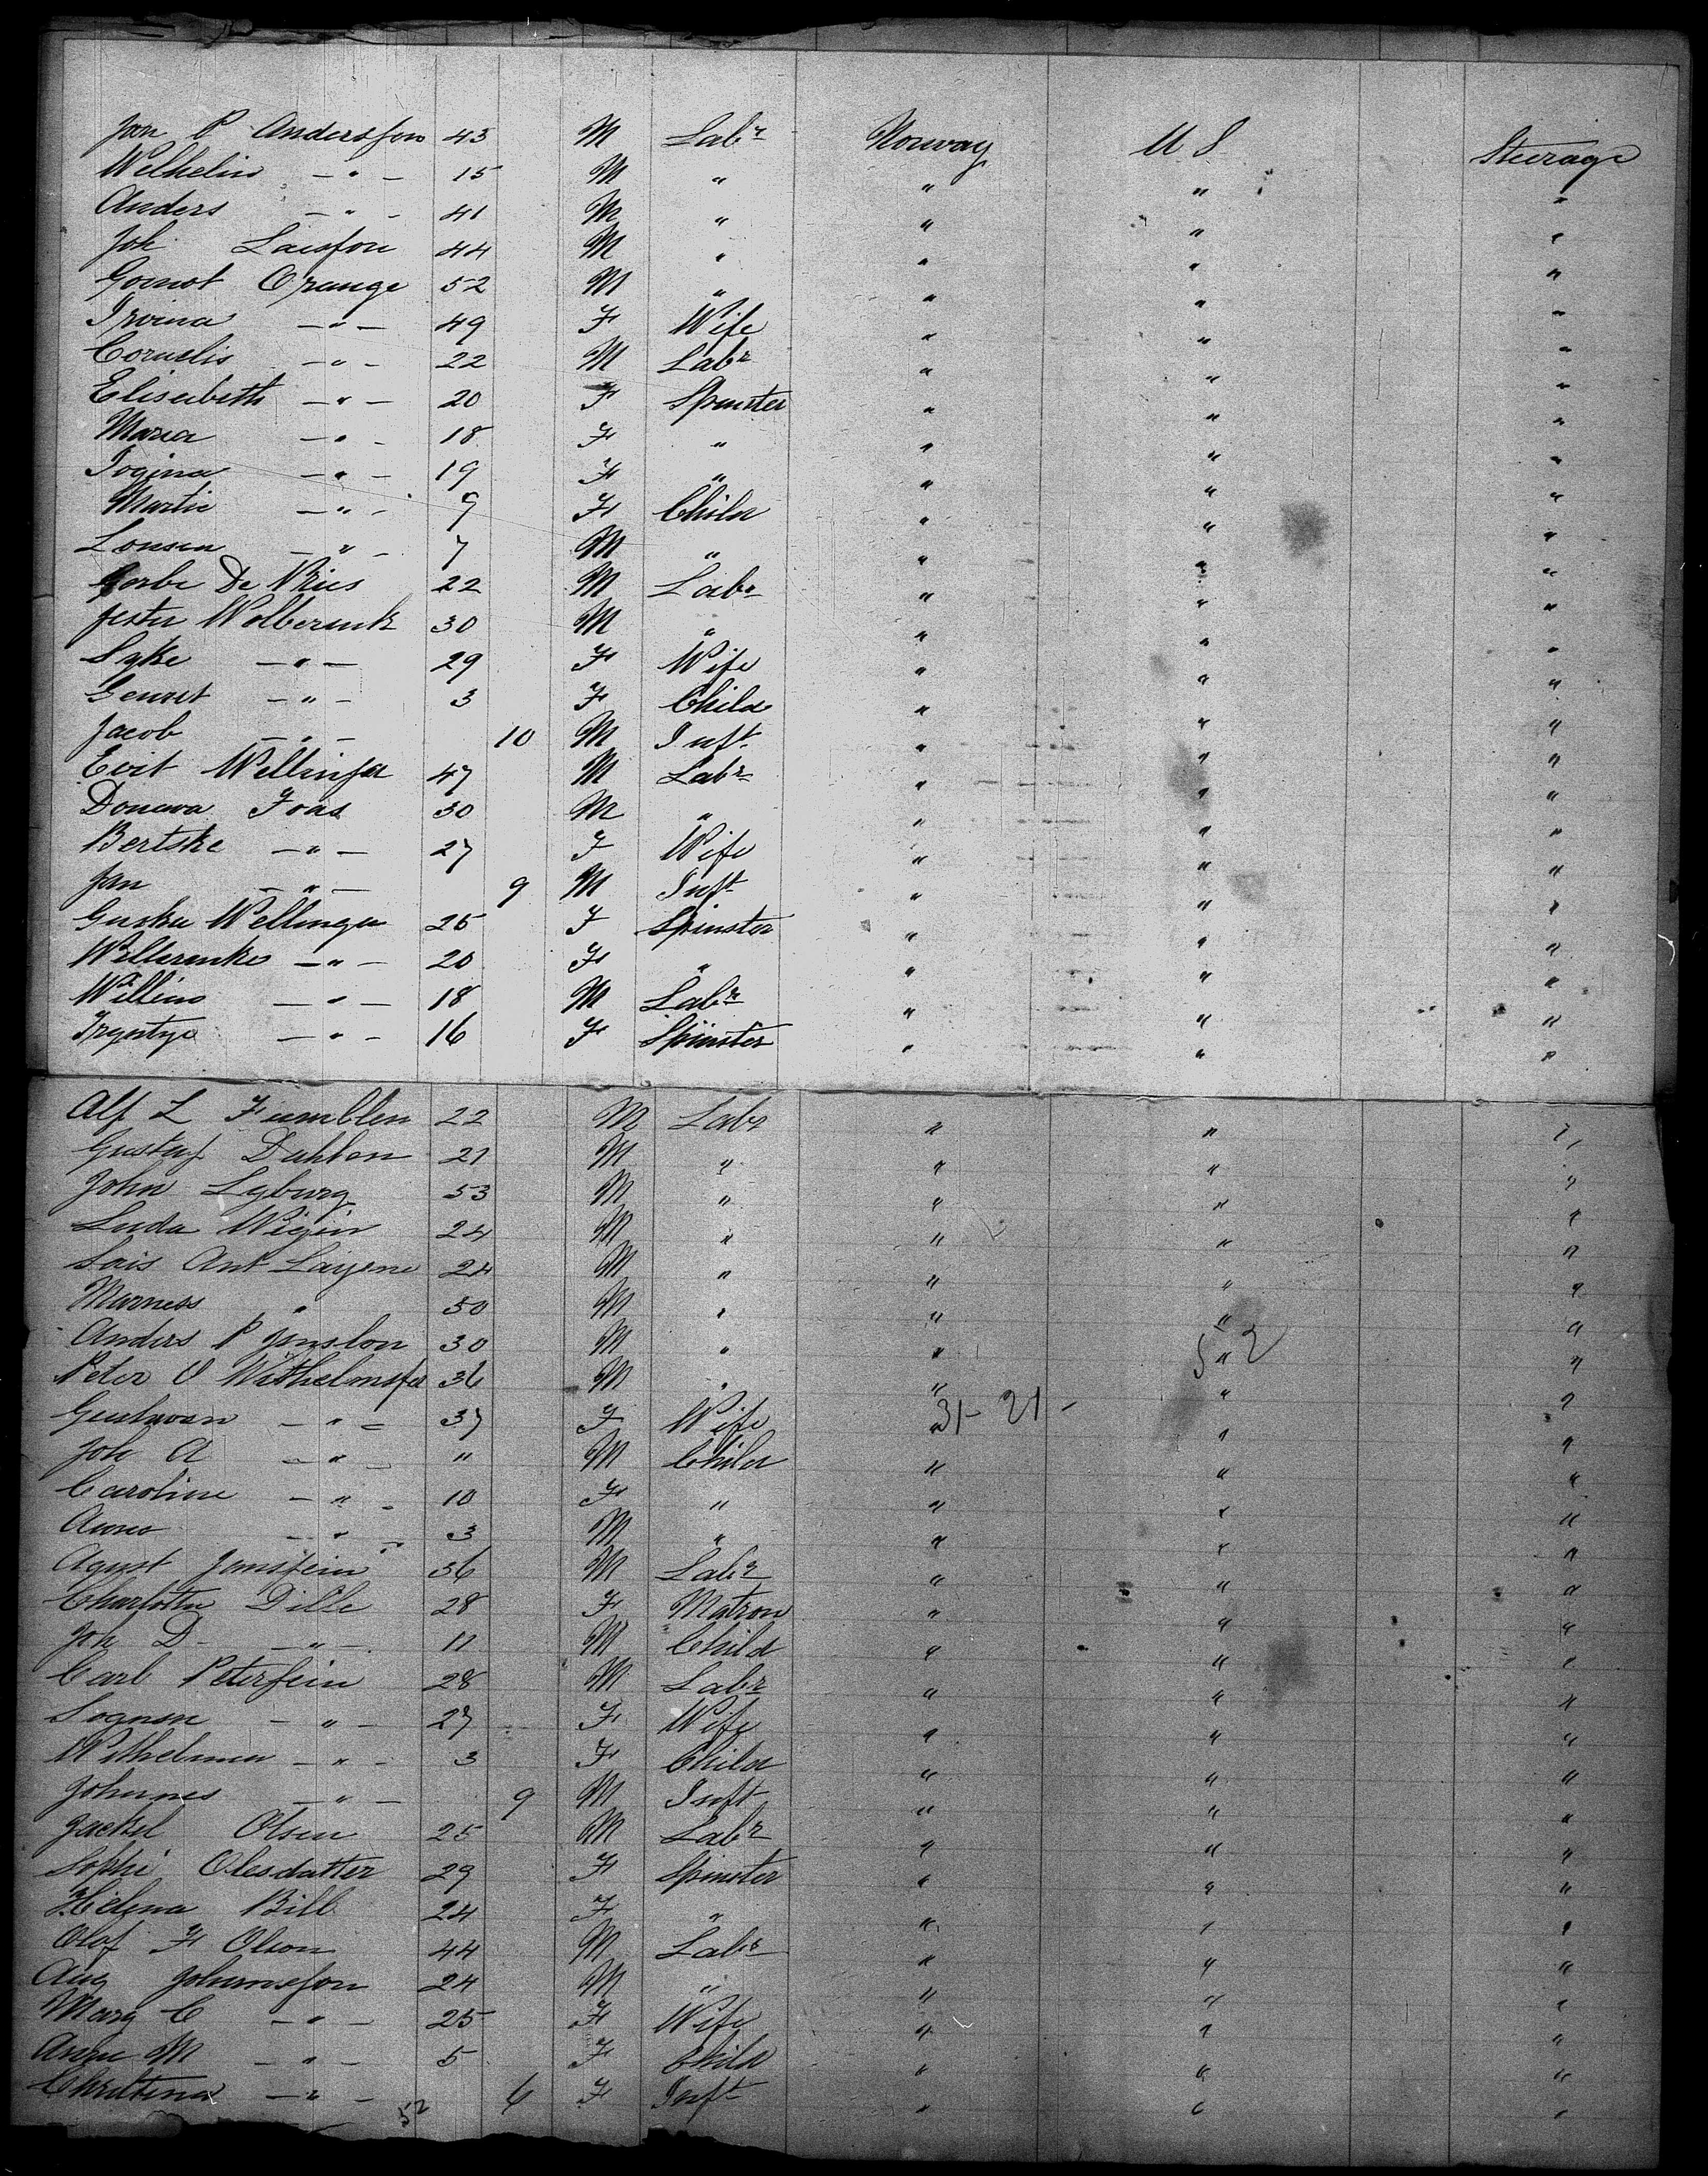 Jon P Andersson 43 M Labr Norway U S Steerage
Wilhelm — " — 15 M " " " "
Anders — " — 41 M " " " "
Joh Laisson 44 M " " " "
Gornot Orange 52 M " " " "
Irvina — " — 49 F Wife " " "
Cornelis — " — 22 M Labr " " "
Elisabeth — " — 20 F Spinster " " "
Maria — " — 18 F " " " "
Jogina — " — 19 F " " " "
Martie — " — 9 F Child " " "
Lonsen — " — 7 M " " " "
Gorbe De Vries 22 M Labr " " "
Jester Wolberank 30 M " " " "
Syke — " — 29 F Wife " " "
Geuret — " — 3 F Child " " "
Jacob — " — 10 M Inft " " "
Evit Wellinga 47 M Labr " " "
Douwa Foas 30 M " " " "
Bertske — " — 27 F Wife " " "
Jan — " — 9 M Inft " " "
Guska Wellinga 25 F Spinster " " "
Wilbranke — " — 20 F " " " "
Willim — " — 18 M Labr " " "
Tryntye — " — 16 F Spinster " " "
Alf L Fumblen 22 M Labr " " "
Gustaf Dahlon 21 M " " " "
John Lyburg 53 M " " " "
Luda Wigin 24 M " " " "
Lais Ant Layene 24 M " " " "
Marness " 50 M " " " "
Anders P Jonslon 30 M " " " "
52
Peter O Wilhelmsfa 36 M " " " "
Gustavan — " — 37 F Wife " " "
31 - 21 -
Joh A — " — " M Child " " "
Caroline — " — 10 F " " " "
Anno — " — 3 M " " " "
Agust Jansfein 36 M Labr " " "
Charlotta Dille 28 F Matron " " "
Joh D — " — 11 M Child " " "
Carl Petersein 28 M Labr " " "
Sognon — " — 27 F Wife " " "
Wilhelmina — " — 3 F Child " " "
Johannes — " — 9 M Inft " " "
Jackel Olsen 25 M Labr " " "
Sophi Olesdatter 29 F Spinster " " "
Helena Bill 24 F " " " "
Olof F Olson 44 M Labr " " "
Aug Johannesson 24 M " " " "
Mary C — " — 25 F Wife " " "
Anna M — " — 5 F Child " " "
Christina — " — 6 F Inft " " "
52